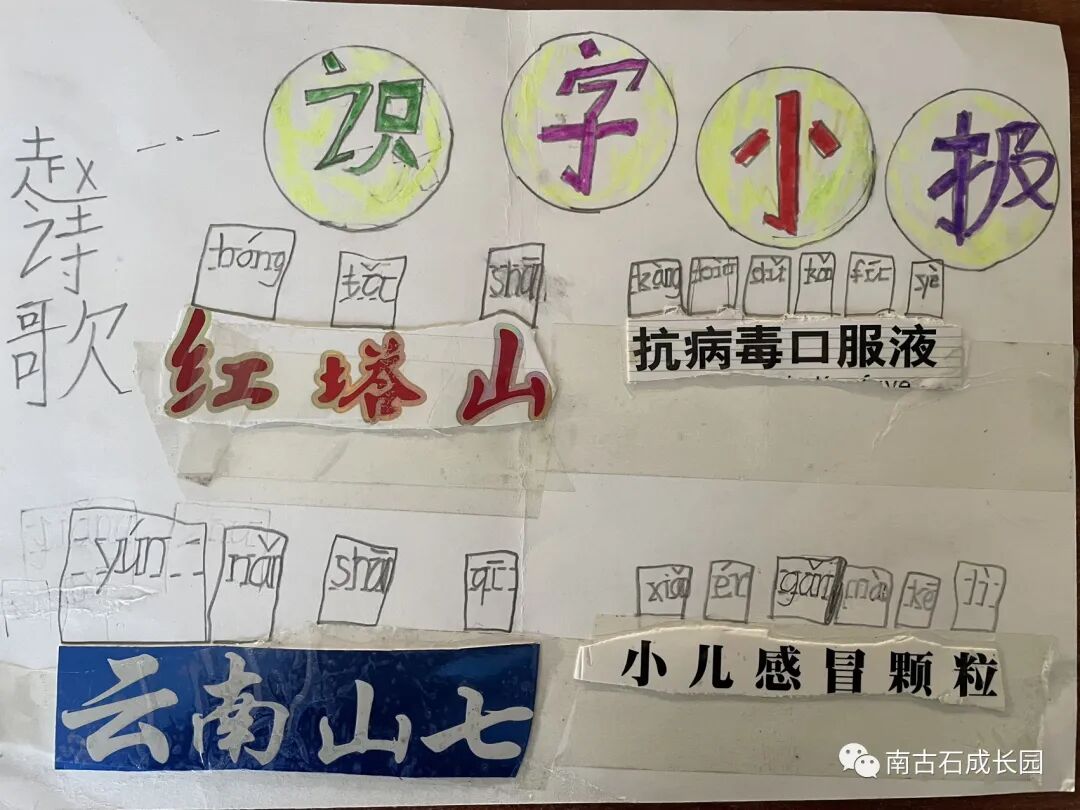 识字小报
赵诗歌
hóng tǎ shān
红塔山
kàng kǒu yè
抗病毒口服液
yún nǎn shān qī
云南山七
xiǎo ér gǎn mào kē lì
小儿感冒颗粒
南古石成长园